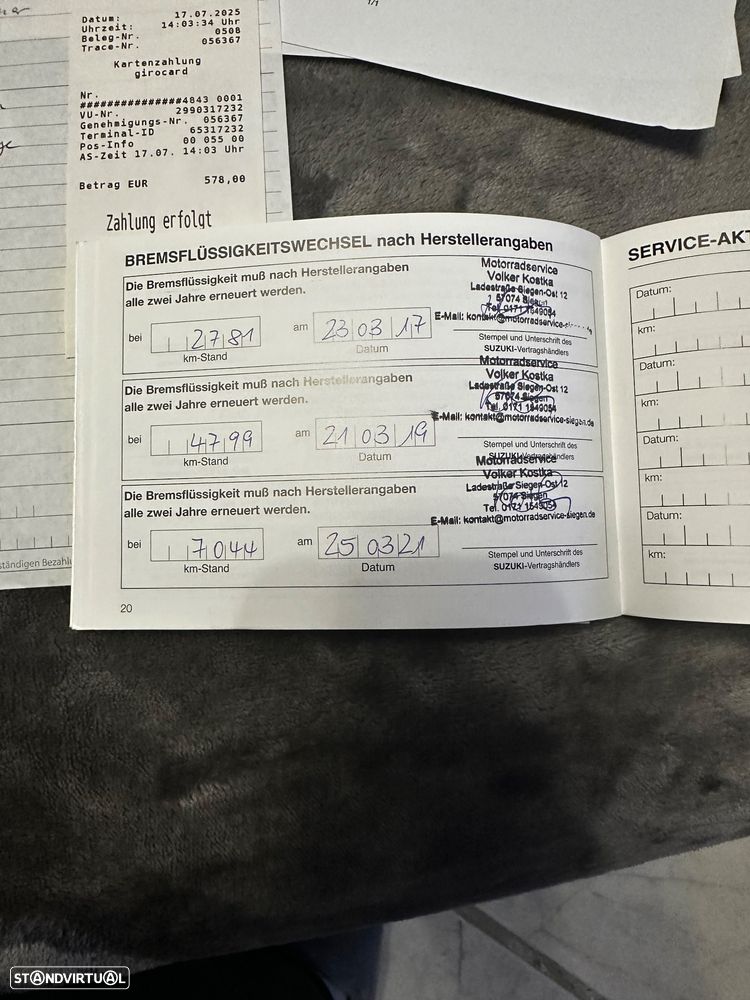 Datum: 17.07.2025
Uhrzeit: 14:03:34 Uhr
Beleg-Nr. 0508
Trace-Nr. 056367
Kartenzahlung
girocard
Nr.
###############4843 0001
VU-Nr. 2990317232
Genehmigungs-Nr. 056367
Terminal-ID 65317232
Pos-Info 00 055 00
AS-Zeit 17.07. 14:03 Uhr
Betrag EUR 578,00
Zahlung erfolgt
1/1
ständigen Bezahlu
BREMSFLÜSSIGKEITSWECHSEL nach Herstellerangaben
Die Bremsflüssigkeit muß nach Herstellerangaben
alle zwei Jahre erneuert werden.
bei 2781 am 23 03 17
km-Stand Datum
Motorradservice
Volker Kostka
Ladestraße Siegen-Ost 12
57074 Siegen
Tel. 0171 1649054
E-Mail: kontakt@motorradservice-
Stempel und Unterschrift des
SUZUKI-Vertragshändlers
Die Bremsflüssigkeit muß nach Herstellerangaben
alle zwei Jahre erneuert werden.
bei 4799 am 21 03 19
km-Stand Datum
Motorradservice
Volker Kostka
Ladestraße Siegen-Ost 12
57074 Siegen
Tel. 0171 1649054
E-Mail: kontakt@motorradservice-siegen.de
Stempel und Unterschrift des
SUZUKI-Vertragshändlers
Die Bremsflüssigkeit muß nach Herstellerangaben
alle zwei Jahre erneuert werden.
bei 7044 am 25 03 21
km-Stand Datum
Motorradservice
Volker Kostka
Ladestraße Siegen-Ost 12
57074 Siegen
Tel. 0171 1649054
E-Mail: kontakt@motorradservice-siegen.de
Stempel und Unterschrift des
SUZUKI-Vertragshändlers
20
SERVICE-AKT
Datum:
km:
Datum:
km:
Datum:
km:
Datum:
km:
STANDVIRTUAL